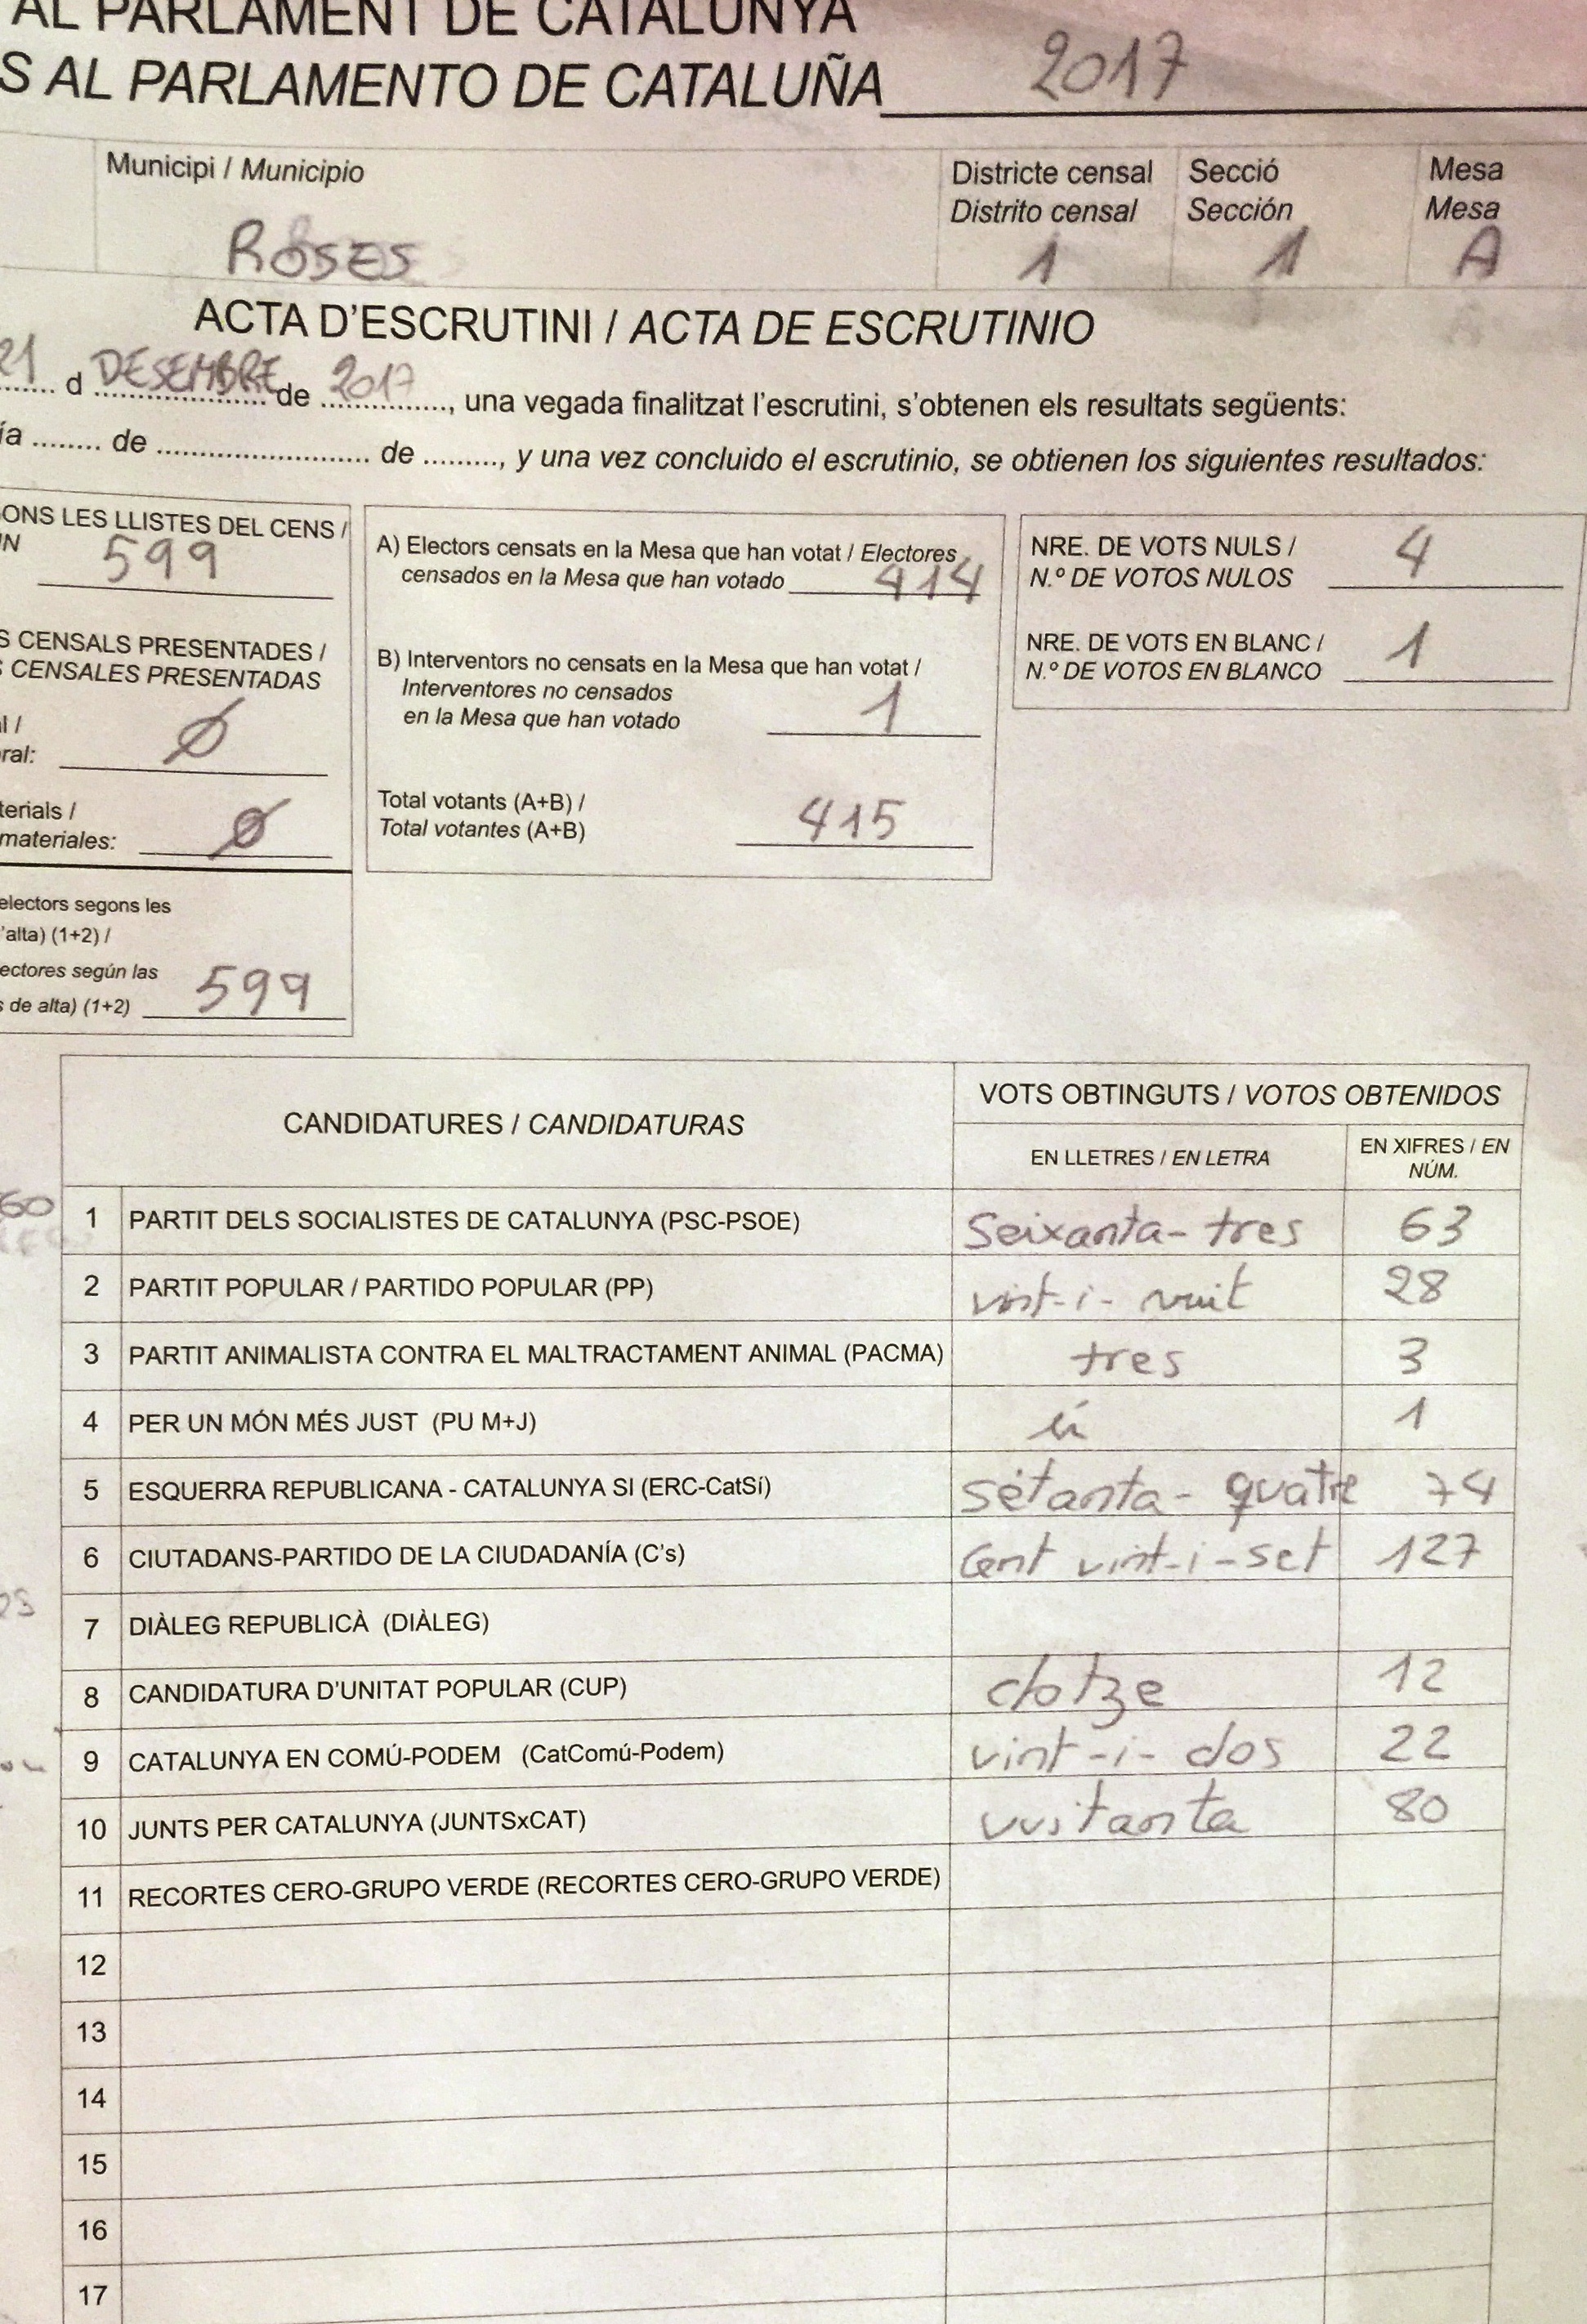 AL PARLAMENT DE CATALUNYA
S AL PARLAMENTO DE CATALUÑA 2017
Municipi / Municipio
Districte censal Secció Mesa
Distrito censal Sección Mesa
ROSES 1 1 A
ACTA D'ESCRUTINI / ACTA DE ESCRUTINIO
21 d DESEMBRE de 2017, una vegada finalitzat l'escrutini, s'obtenen els resultats següents:
ía ........ de ........................ de ........., y una vez concluido el escrutinio, se obtienen los siguientes resultados:
ONS LES LLISTES DEL CENS /
N 599
S CENSALS PRESENTADES /
S CENSALES PRESENTADAS
l /
ral: Ø
terials /
materiales: Ø
electors segons les
'alta) (1+2) /
ectores según las
s de alta) (1+2) 599
A) Electors censats en la Mesa que han votat / Electores
censados en la Mesa que han votado 414
B) Interventors no censats en la Mesa que han votat /
Interventores no censados
en la Mesa que han votado 1
Total votants (A+B) /
Total votantes (A+B) 415
NRE. DE VOTS NULS /
N.º DE VOTOS NULOS 4
NRE. DE VOTS EN BLANC /
N.º DE VOTOS EN BLANCO 1
CANDIDATURES / CANDIDATURAS
VOTS OBTINGUTS / VOTOS OBTENIDOS
EN LLETRES / EN LETRA
EN XIFRES / EN
NÚM.
1 PARTIT DELS SOCIALISTES DE CATALUNYA (PSC-PSOE) Seixanta-tres 63
2 PARTIT POPULAR / PARTIDO POPULAR (PP) vint-i-vuit 28
3 PARTIT ANIMALISTA CONTRA EL MALTRACTAMENT ANIMAL (PACMA) tres 3
4 PER UN MÓN MÉS JUST (PU M+J) 1
5 ESQUERRA REPUBLICANA - CATALUNYA SI (ERC-CatSí) sètanta-quatre 74
6 CIUTADANS-PARTIDO DE LA CIUDADANÍA (C's) Cent vint-i-set 127
7 DIÀLEG REPUBLICÀ (DIÀLEG)
8 CANDIDATURA D'UNITAT POPULAR (CUP) dotze 12
9 CATALUNYA EN COMÚ-PODEM (CatComú-Podem) vint-i-dos 22
10 JUNTS PER CATALUNYA (JUNTSxCAT) vuitanta 80
11 RECORTES CERO-GRUPO VERDE (RECORTES CERO-GRUPO VERDE)
12
13
14
15
16
17